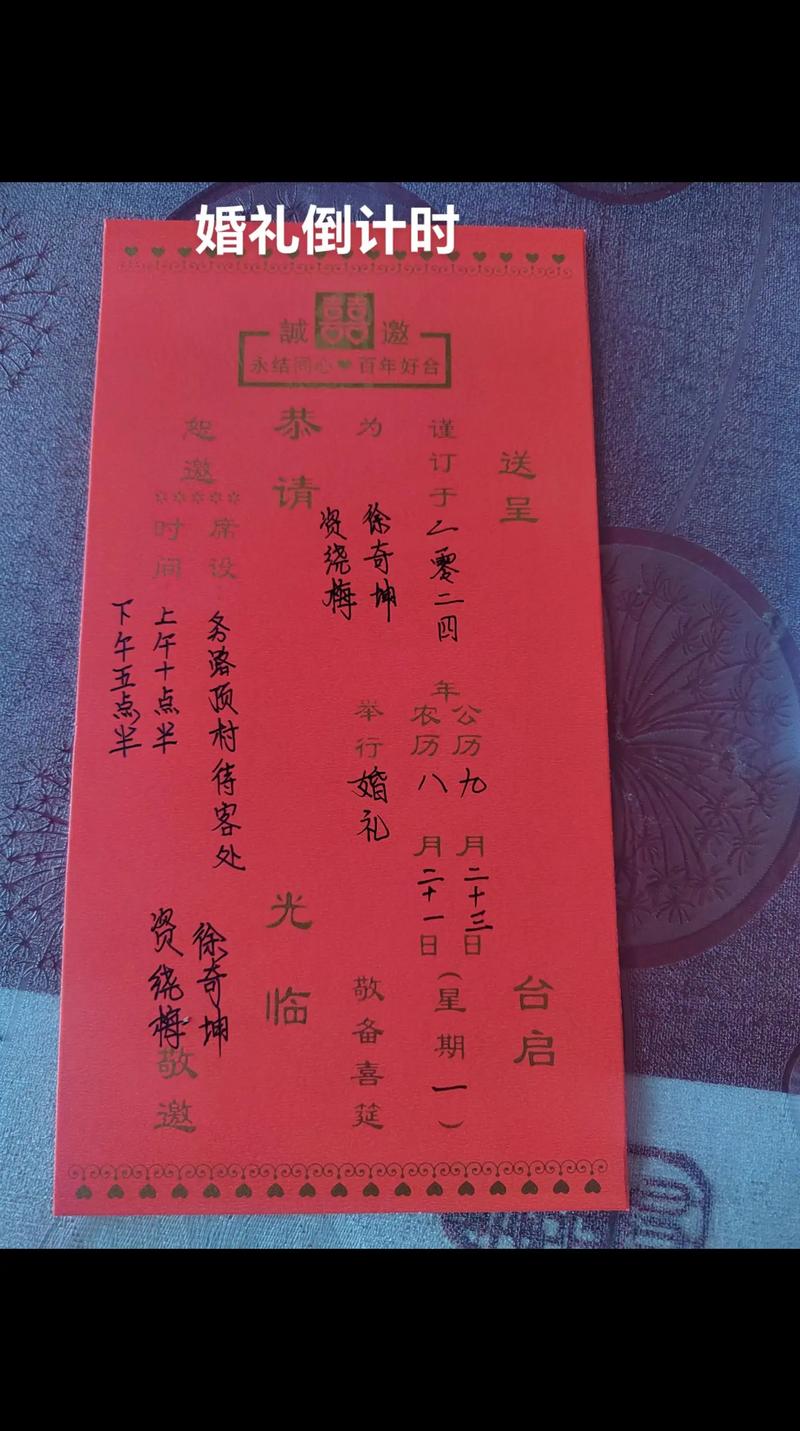 婚礼倒计时
誠囍邀
永结同心♥百年好合
送呈
台启
谨订于二零二四年
公历九月二十三日
农历八月二十一日
(星期一)
为
徐奇坤
资绕梅
举行婚礼
敬备喜筵
恭请
光临
恕邀
席设
务路顶村待客处
时间
上午十点半
下午五点半
徐奇坤
资绕梅
敬邀